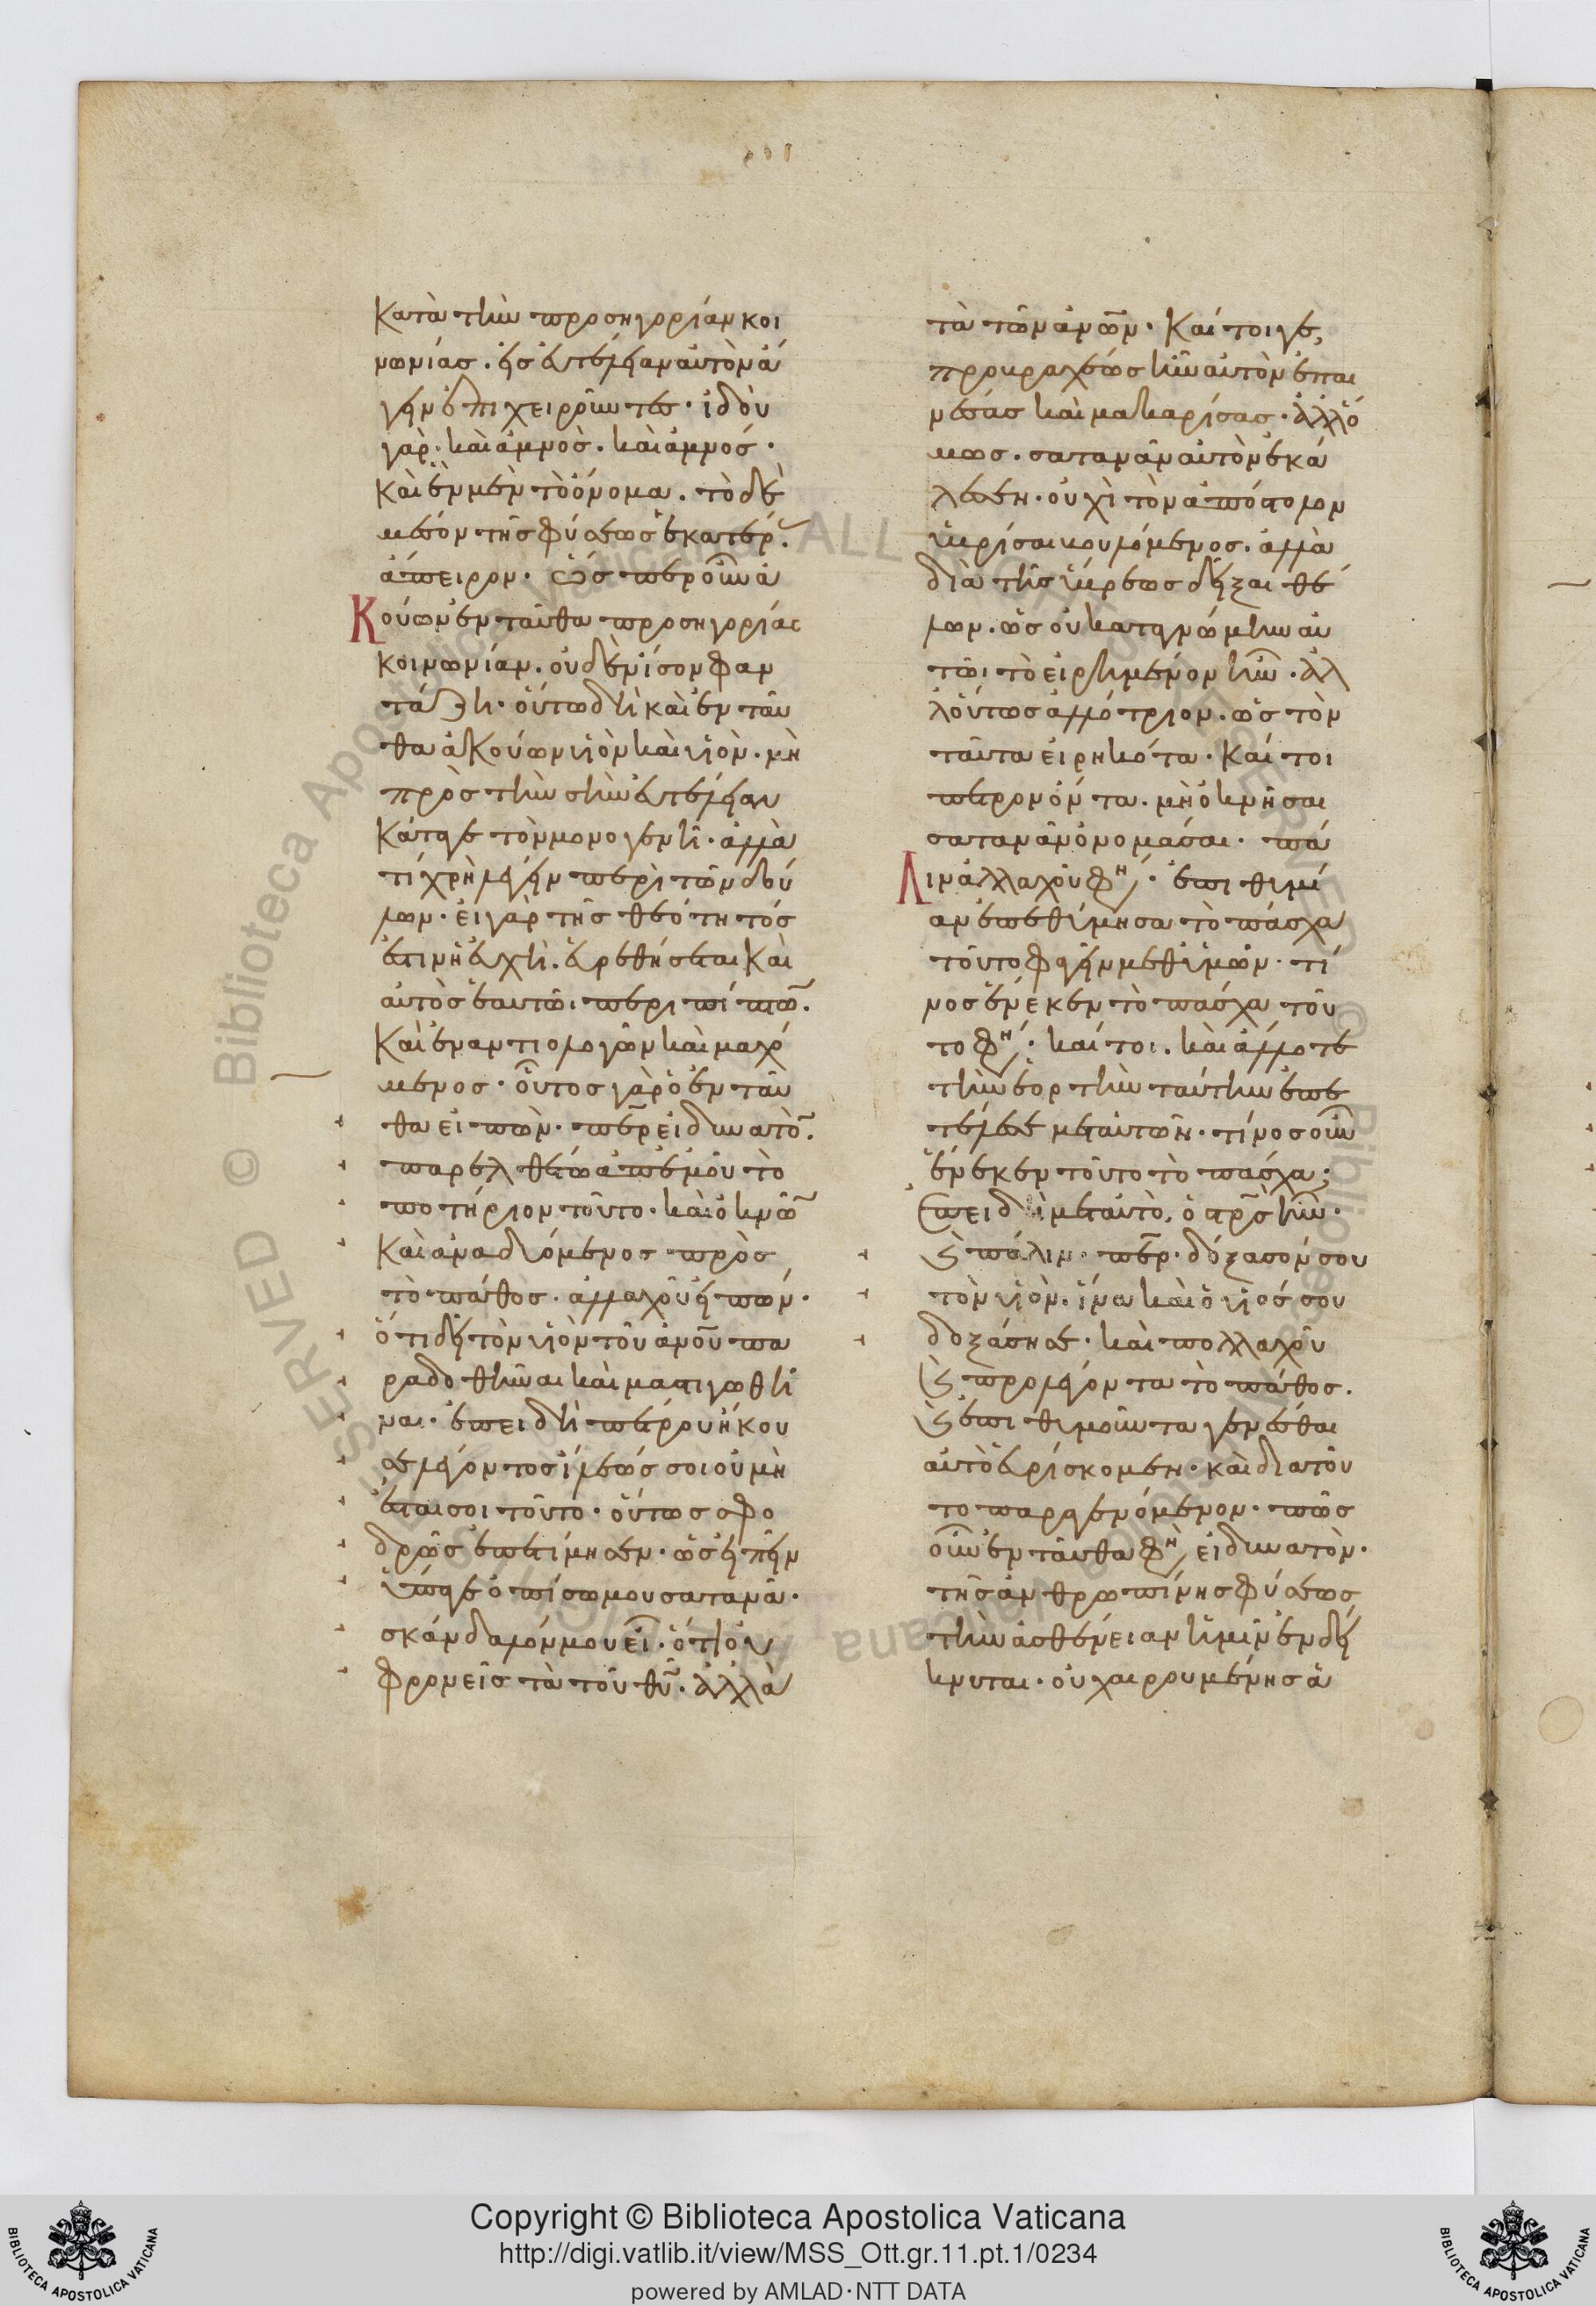 κατὰ τὴν προσηγορίαν κοι
νωνίας. εἰς εὐτέλειαν αὐτὸν ἄ
γειν ἐπιχειροῦντες· ἰδοὺ
γὰρ· καὶ ἀμνὸς. καὶ ἀμνός·
καὶ ἓν μὲν τὸ ὄνομα. τὸ δὲ
μέσον τῆς φύσεως ἑκατέρ
ἄπειρον· ὥσπερ οὖν ἀ
Κούων ἐνταῦθα προσηγορίας
κοινωνίαν. οὐδὲν ἴσον φαν
τάζη· οὕτω δὴ καὶ ἐνταῦ
θα ἀκούων υἱὸν καὶ υἱὸν. μὴ
πρὸς τὴν σὴν εὐτέλειαν
κάταγε τὸν μονογενῆ· ἀλλὰ
τί χρὴ λέγειν περὶ τῶν δού
λων· εἰ γὰρ τῆς θεότητός
ἐστιν ἡ εὐχὴ. εὑρεθήσεται καὶ
αὐτὸς ἑαυτῶι περιπίπτων̅.
καὶ ἐναντιολογῶν καὶ μαχό
μενος· οὗτος γὰρ ὁ ἐνταῦ
θα εἰπὼν· πε̅ρ εἰ δυνατὸ̅.
παρελθέτω ἀπ' ἐμοῦ τὸ
ποτήριον τοῦτο· καὶ ὀκνῶ̅
καὶ ἀναδυόμενος πρὸς
τὸ πάθος. ἀλλαχοῦ εἰπών·
ὅτι δεῖ τὸν υἱὸν τοῦ ἀν̅ου πα
ραδοθῆναι καὶ μαστιγωθῆ
ναι· ἐπειδὴ πέτρου ἤκου
σε λέγοντος ἵλεώς σοι οὐ μὴ
ἔσται σοι τοῦτο· οὕτως σφο
δρῶς ἐπετίμησεν· ὡς εἰπεῖν
ὕπαγε ὀπίσω μου σατανᾶ·
σκάνδαλόν μου εἶ· ὅτι οὐ
φρονεῖς τὰ τοῦ θ̅υ. ἀλλὰ
τὰ τῶν ἀν̅ων· καίτοι γε,
προ βραχέως ἦν αὐτὸν ἐπαι
νέσας καὶ μακαρίσας· ἀλλ' ὅ
μως. σατανᾶν αὐτὸν ἐκά
λεσεν· οὐχὶ τὸν ἀπόστολον
ὑβρίσαι βουλόμενος. ἀλλὰ
διὰ τῆς ὕβρεως δεῖξαι θέ
λων. ὡς οὐ κατὰ γνώμην αὐ
τῶι τὸ εἰρημένον ἦν̅. ἀλ
λ' οὕτως ἀλλότριον. ὡς τὸν
ταῦτα εἰρηκότα· καίτοι
πέτρον ὄντα. μὴ ὀκνῆσαι
σατανᾶν ὀνομάσαι· πά
Λιν ἀλλαχοῦ φη· ἐπιθυμί
αν ἐπεθύμησα τὸ πάσχα
τοῦτο φαγεῖν μεθ' ὑμῶν· τί
νος ἕνεκεν τὸ πάσχα τοῦ
το φη· καίτοι. καὶ ἄλλοτε
τὴν ἑορτὴν ταύτην ἐπε
τέλεσε μετ' αὐτῶν· τίνος οὖν
ἕνεκεν τοῦτο τὸ πάσχα;
ἐπειδὴ μετ' αὐτὸ, ὁ στ̅ρὸς ἦν·
καὶ πάλιν· πε̅ρ· δόξασόν σου
τὸν υἱὸν. ἵνα καὶ ὁ υἱός σου
δοξάση σε· καὶ πολλαχοῦ
καὶ προλέγοντα τὸ πάθος.
καὶ ἐπιθυμοῦντα γενέσθαι
αὐτὸ εὑρίσκομεν· καὶ διὰ τοῦ
το παραγενόμενον· πῶς
οὖν ἐνταῦθα φη εἰ δυνατὸν·
τῆς ἀνθρωπίνης φύσεως
τὴν ἀσθένειαν ἡμῖν ἐνδεί
κνυται· οὐχ αἱρουμένης ἁ